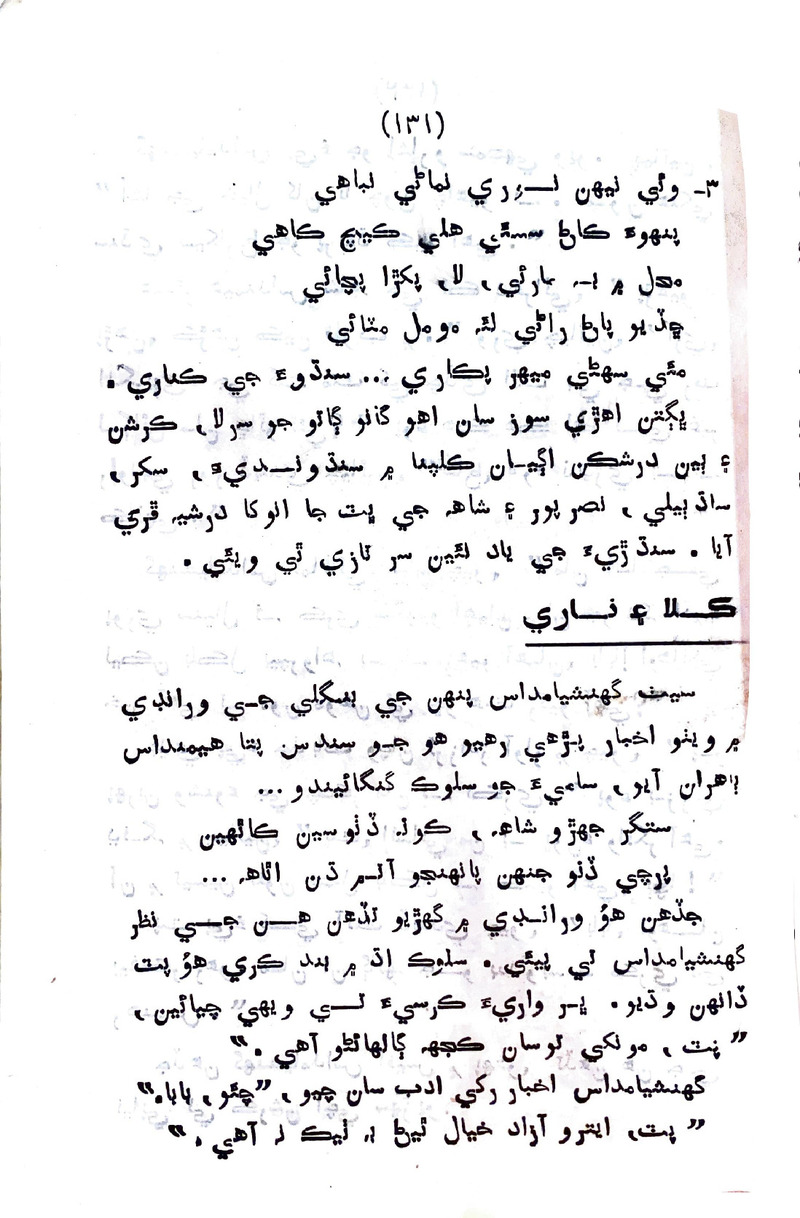 (١٣١)
٣- وئي نيهن لــئرري نماڻي نباهي
پنهوءَ ڪاڻ سسئي هلي ڪيچ ڪاهي
محل ۾ بہ مارئي، لاءِ پکڙا پڄائي
ڇڏيو پاڻ راڻي لئہ مومل مٽائي
مٿي سهڻي ميهر پڪاري ... سنڌوءَ جي ڪناري.
ڀڳتن اهڙي سوز سان اهو گانو ڳاتو جو سرلا، ڪرشن
۽ ٻين درشڪن اڳيان ڪلپنا ۾ سنڌو نــديءَ، سکر،
ساڌ ٻيلي، نصر پور ۽ شاھہ جي ڀٽ جا انوکا درشيہ ڦري
آيا. سنڌڙيءَ جي ياد نئين سر تازي ٿي ويئي.
ڪــلا ۽ نــاري
سيٺ گهنشيامداس پنهن جي بنگلي جــي ورانڊي
۾ ويٺو اخبار پــڙهي رهيو هو جــو سندس پتا هيمنداس
ٻاهران آيو، ساميءَ جو سلوڪ گنگائيندو ...
ستگر جهڙو شاھہ، ڪونہ ڏٺوسين ڪاٿهين
پرچي ڏنو جنهن پانهنجو آتــم ڌن اٿاھہ ...
جڏهن هوُ ورانــڊي ۾ گهڙيو تڏهن هــن جــي نظر
گهنشيامداس تي پيئي. سلوڪ اڌ ۾ بند ڪري هوُ پٽ
ڏانهن وڌيو. ڀــر واريءَ ڪرسيءَ تــي ويهي چيائين،
”پٽ، مونکي توسان ڪجهہ ڳالهائڻو آهي.“
گهنشيامداس اخبار رکي ادب سان چيو، ”چئو، بابا.“
”پٽ، ايترو آزاد خيال ٿيڻ بہ ٺيڪ نہ آهي.“